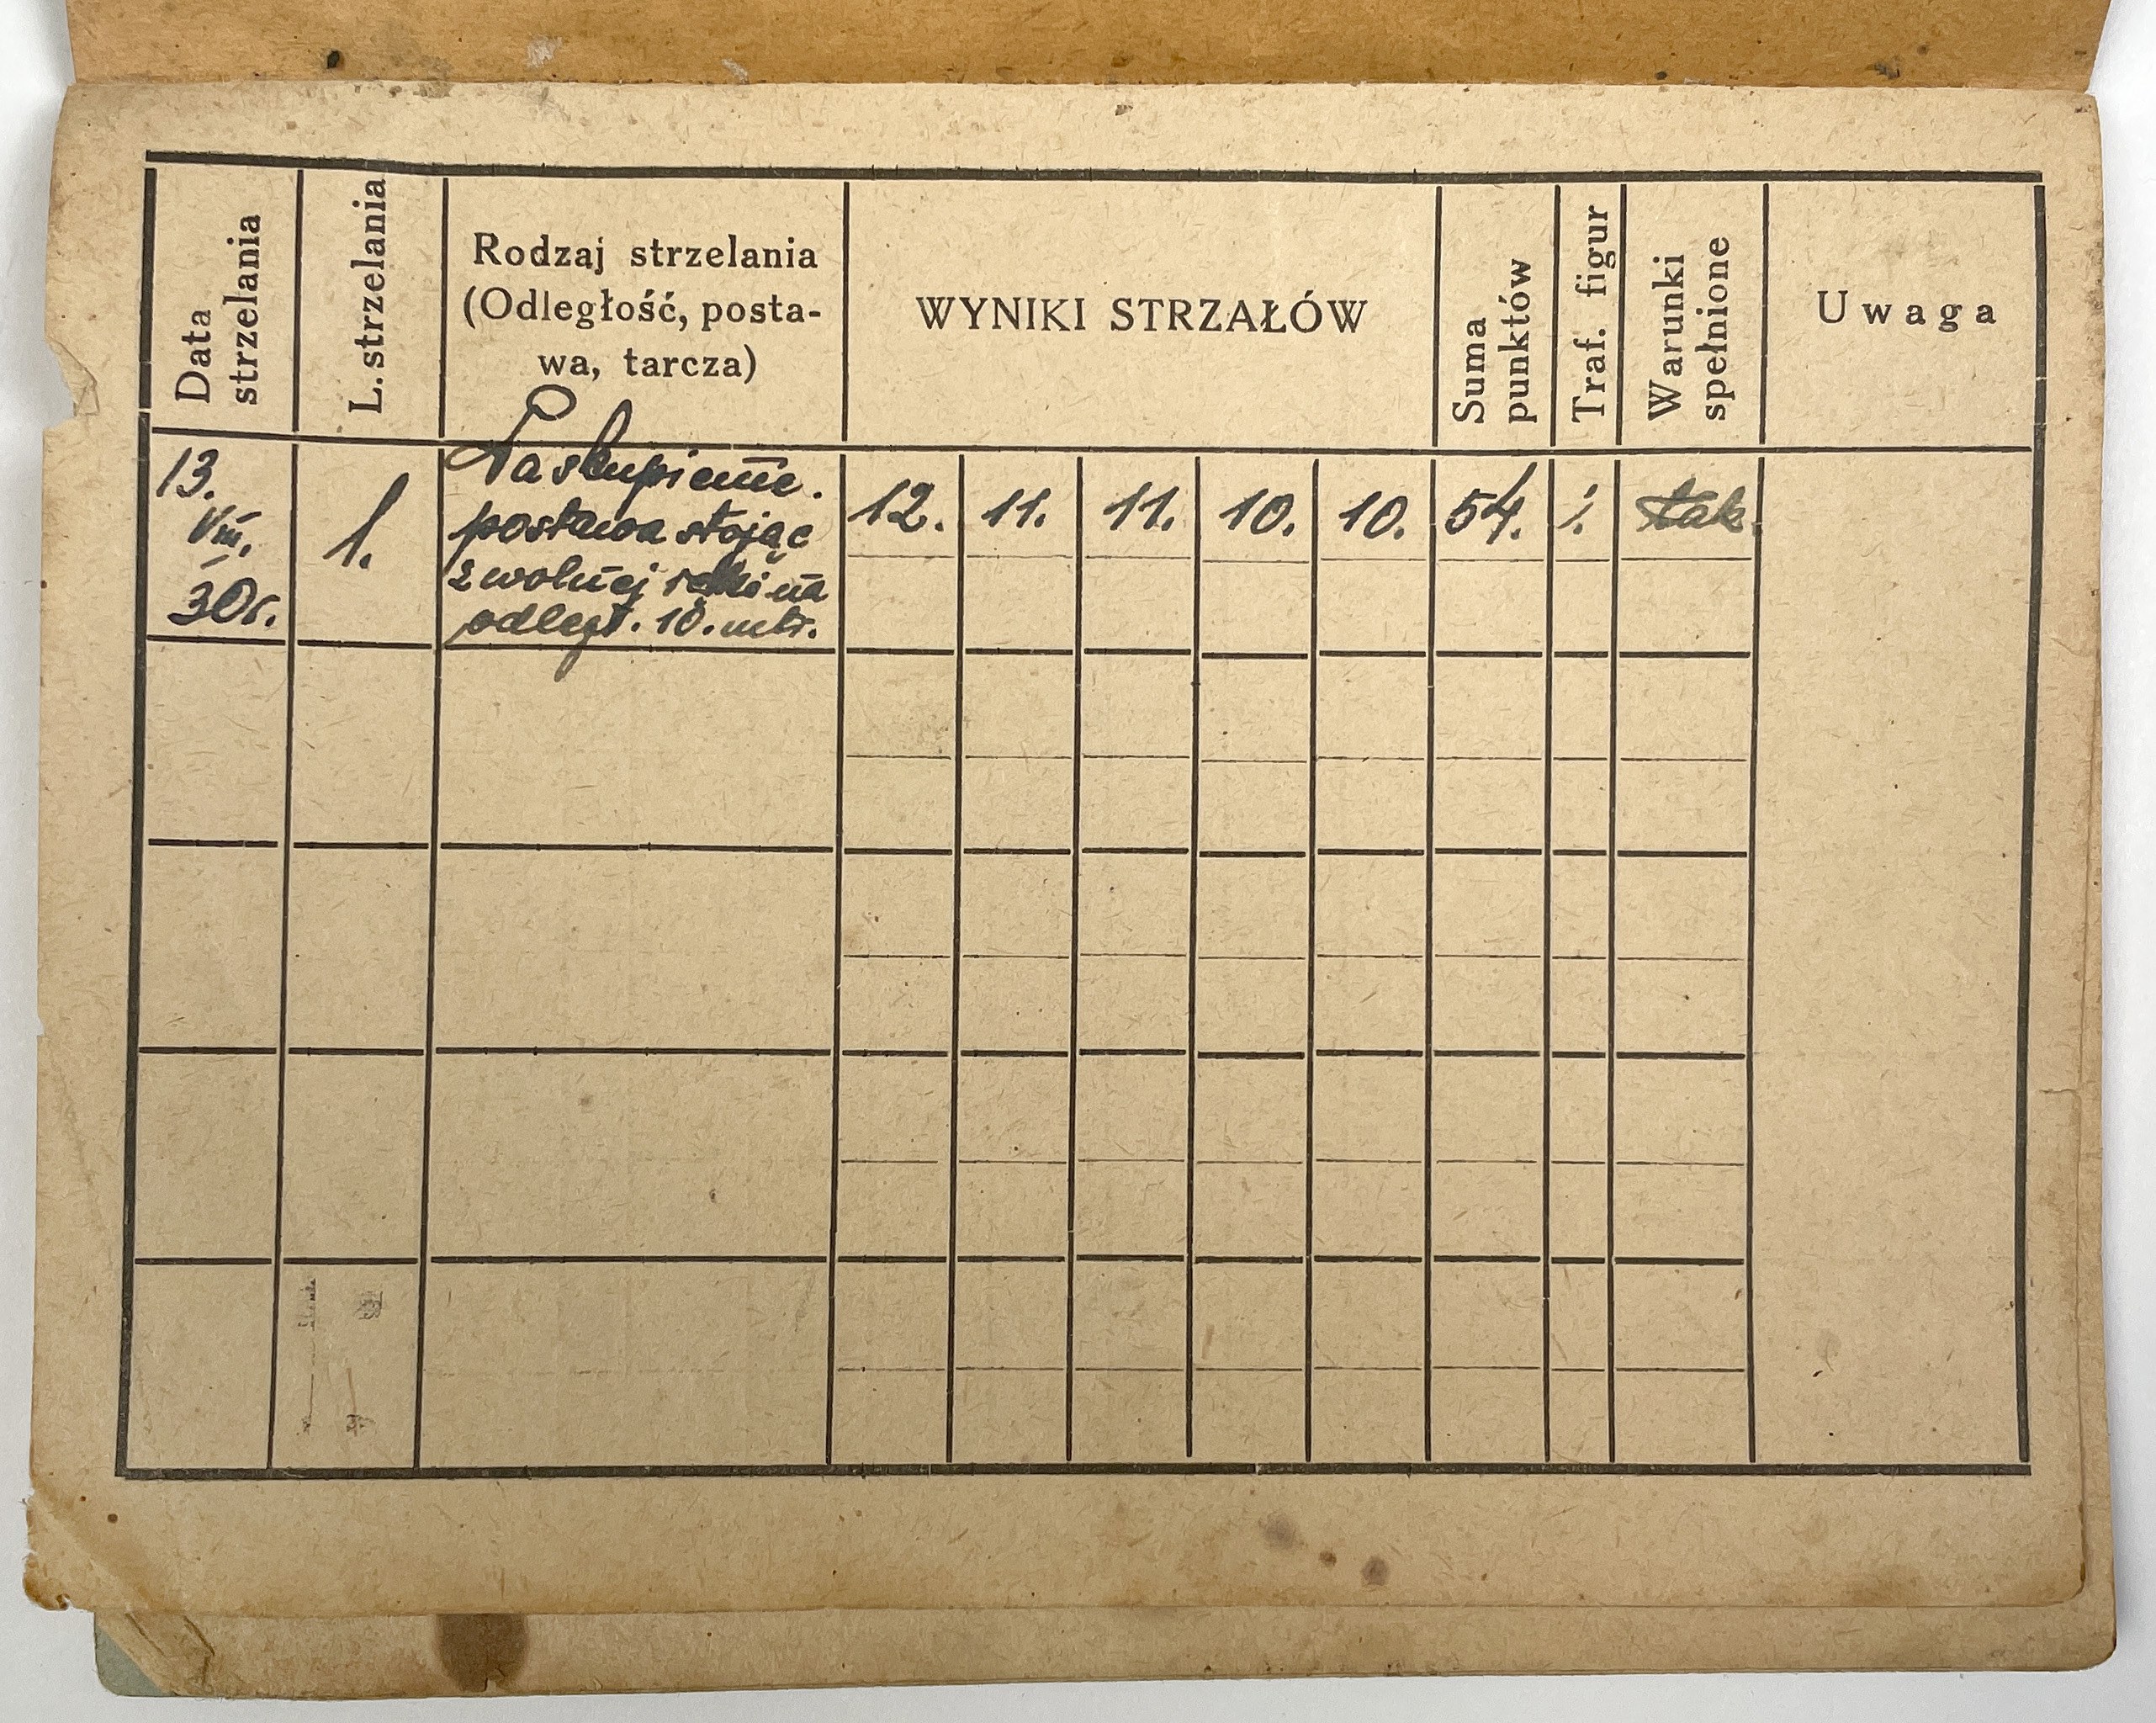 Data
strzelania
L. strzelania
Rodzaj strzelania
(Odległość, posta-
wa, tarcza)
WYNIKI STRZAŁÓW
Suma
punktów
Traf. figur
Warunki
spełnione
Uwaga
13.
VIII.
30r.
1.
Na skupienie.
postawa stojąc
z wolnej ręki na
odległ. 10. mtr.
12. 11. 11. 10. 10. 54. /. tak.